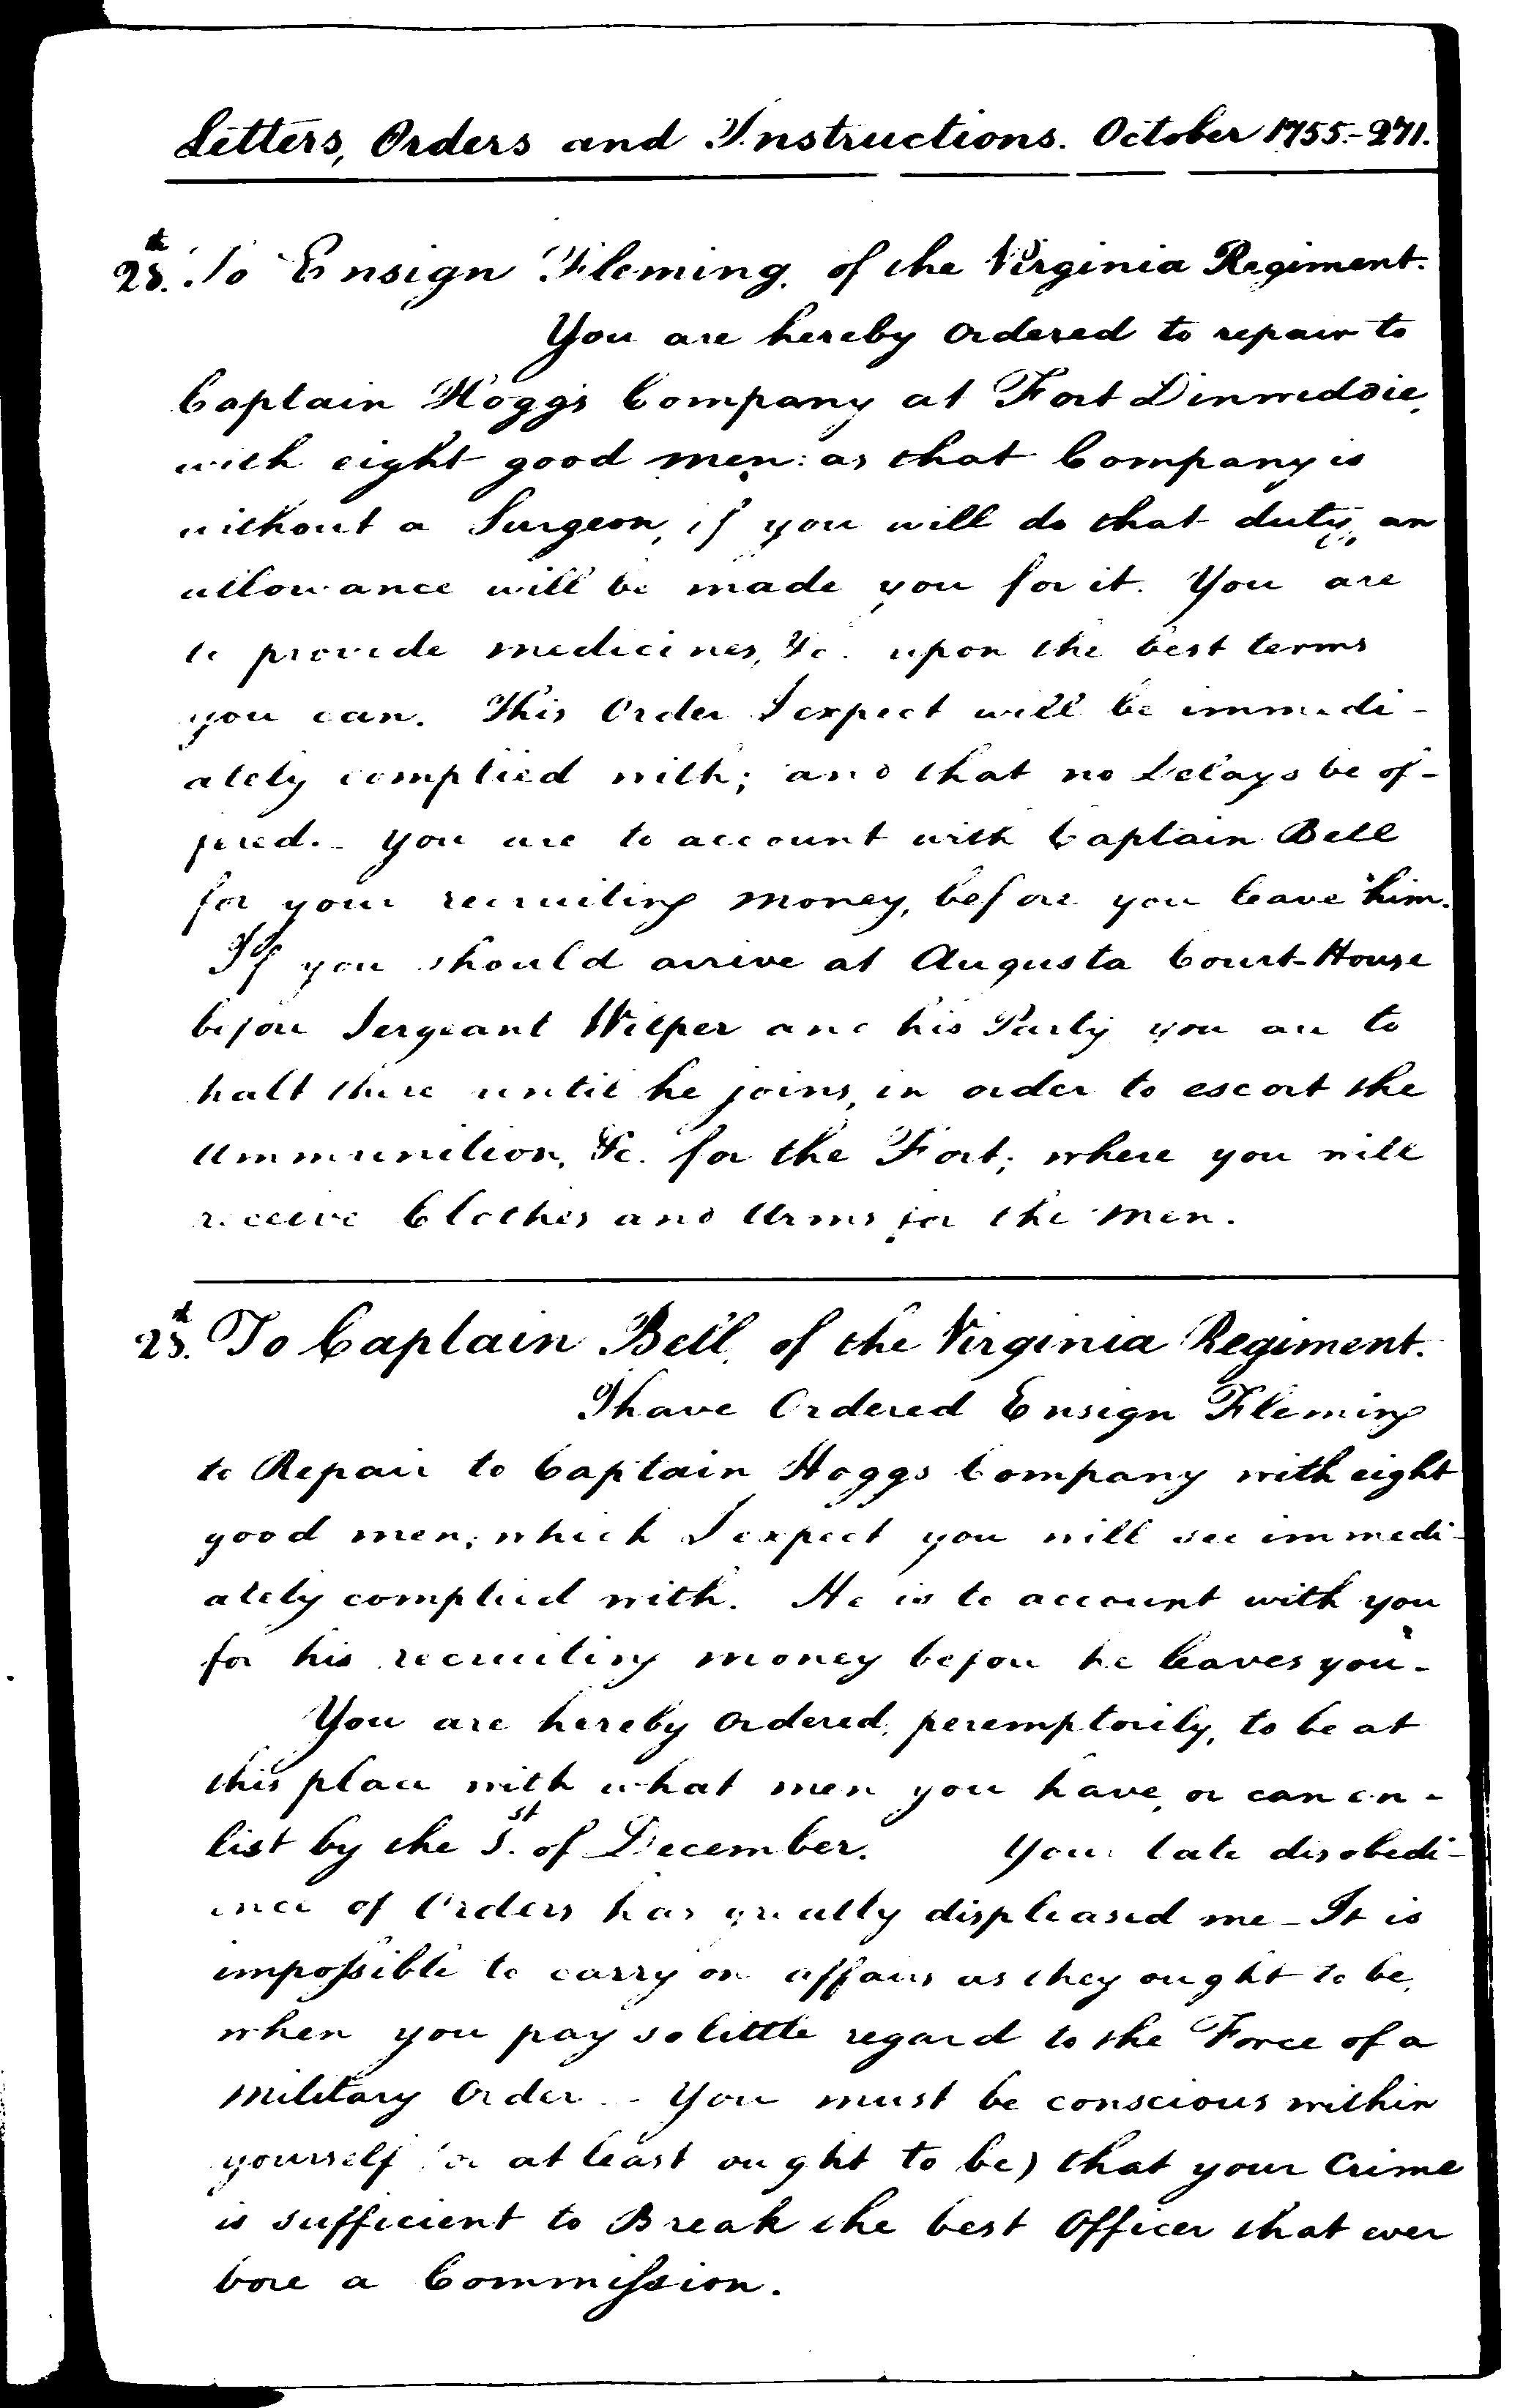 Letters, Orders and Instructions. October 1755.-271.
28th. To Ensign Fleming, of the Virginia Regiment.
You are hereby ordered to repair to
Captain Hoggs Company at Fort Dinwiddie,
with eight good men: as that Company is
without a Surgeon, if you will do that duty, an
allowance will be made you for it. You are
to provide medicines, &c. upon the best terms
you can. This Order I expect will be immedi-
ately complied with; and that no Delays be of-
fered. - You are to account with Captain Bell
for your recruiting money, before you leave him.
If you should arrive at Augusta Court-House
before Sergeant Wilper and his Party you are to
halt there until he joins, in order to escort the
Ammunition, &c. for the Fort; where you will
receive Clothes and Arms for the men.
28th. To Captain Bell, of the Virginia Regiment.
I have Ordered Ensign Fleming
to Repair to Captain Hoggs Company with eight
good men; which I expect you will see immedi-
ately complied with. He is to account with you
for his recruiting money before he leaves you -
You are hereby ordered, peremptorily, to be at
this place with what men you have, or can en-
list by the 1st. of December. Your late disobedi-
ence of Orders has greatly displeased me - It is
impossible to carry on affairs as they ought to be,
when you pay so little regard to the Force of a
military Order - You must be conscious within
yourself (or at least ought to be) that your Crime
is sufficient to Break the best Officer that ever
bore a Commission.